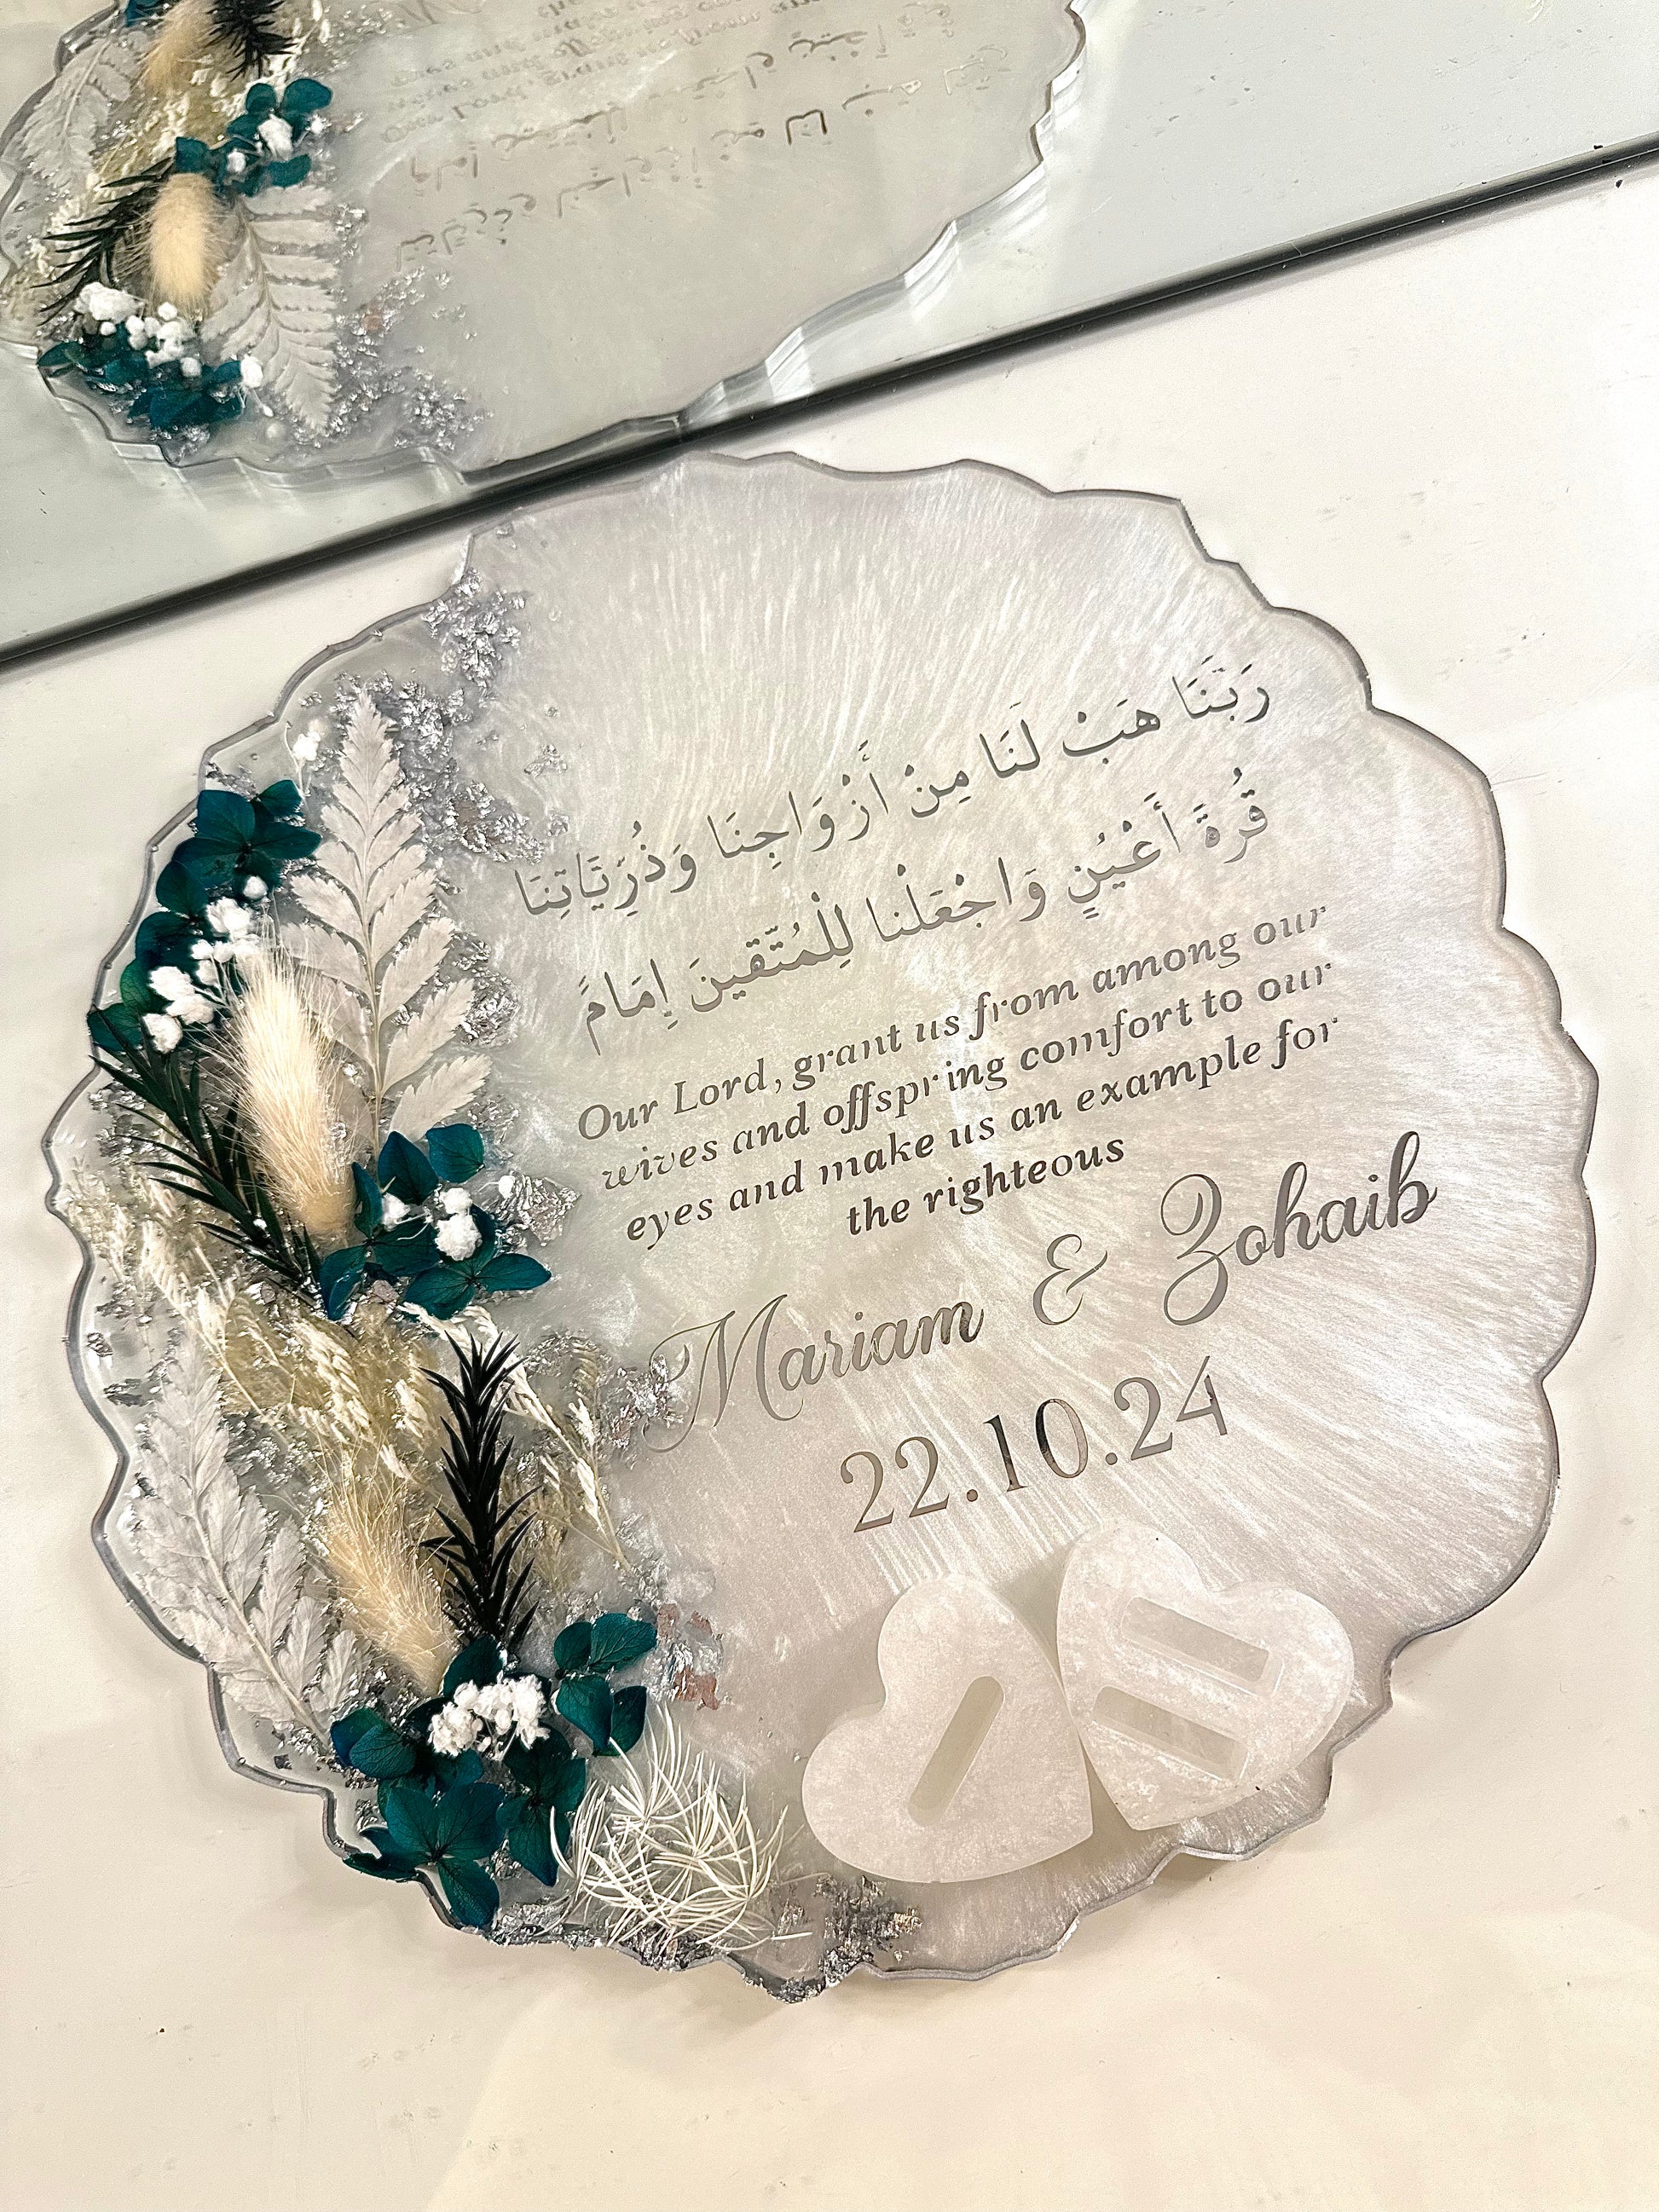 رَبَّنَا هَبْ لَنَا مِنْ أَزْوَاجِنَا وَذُرِّيَّاتِنَا
قُرَّةَ أَعْيُنٍ وَاجْعَلْنا لِلْمُتَّقينَ إِمَامً
Our Lord, grant us from among our
wives and offspring comfort to our
eyes and make us an example for
the righteous
Mariam & Zohaib
22.10.24